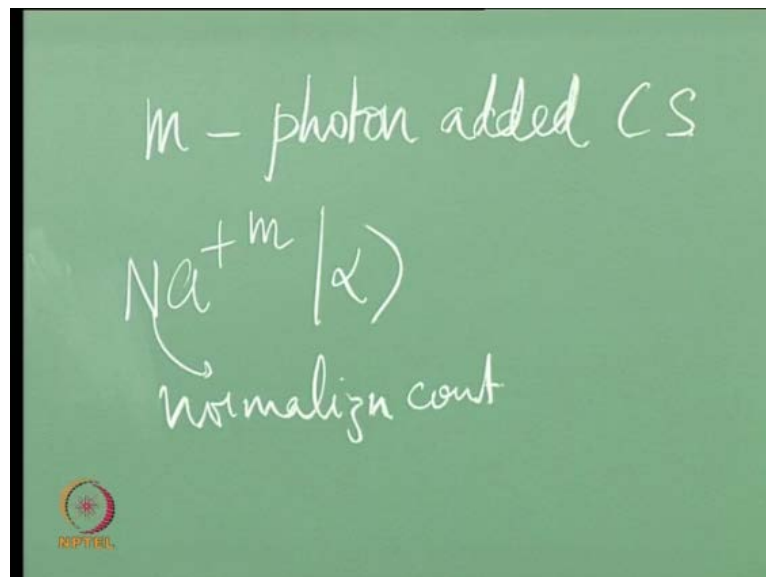 m - photon added CS
Na^{+m} |α⟩
normalizn const
NPTEL